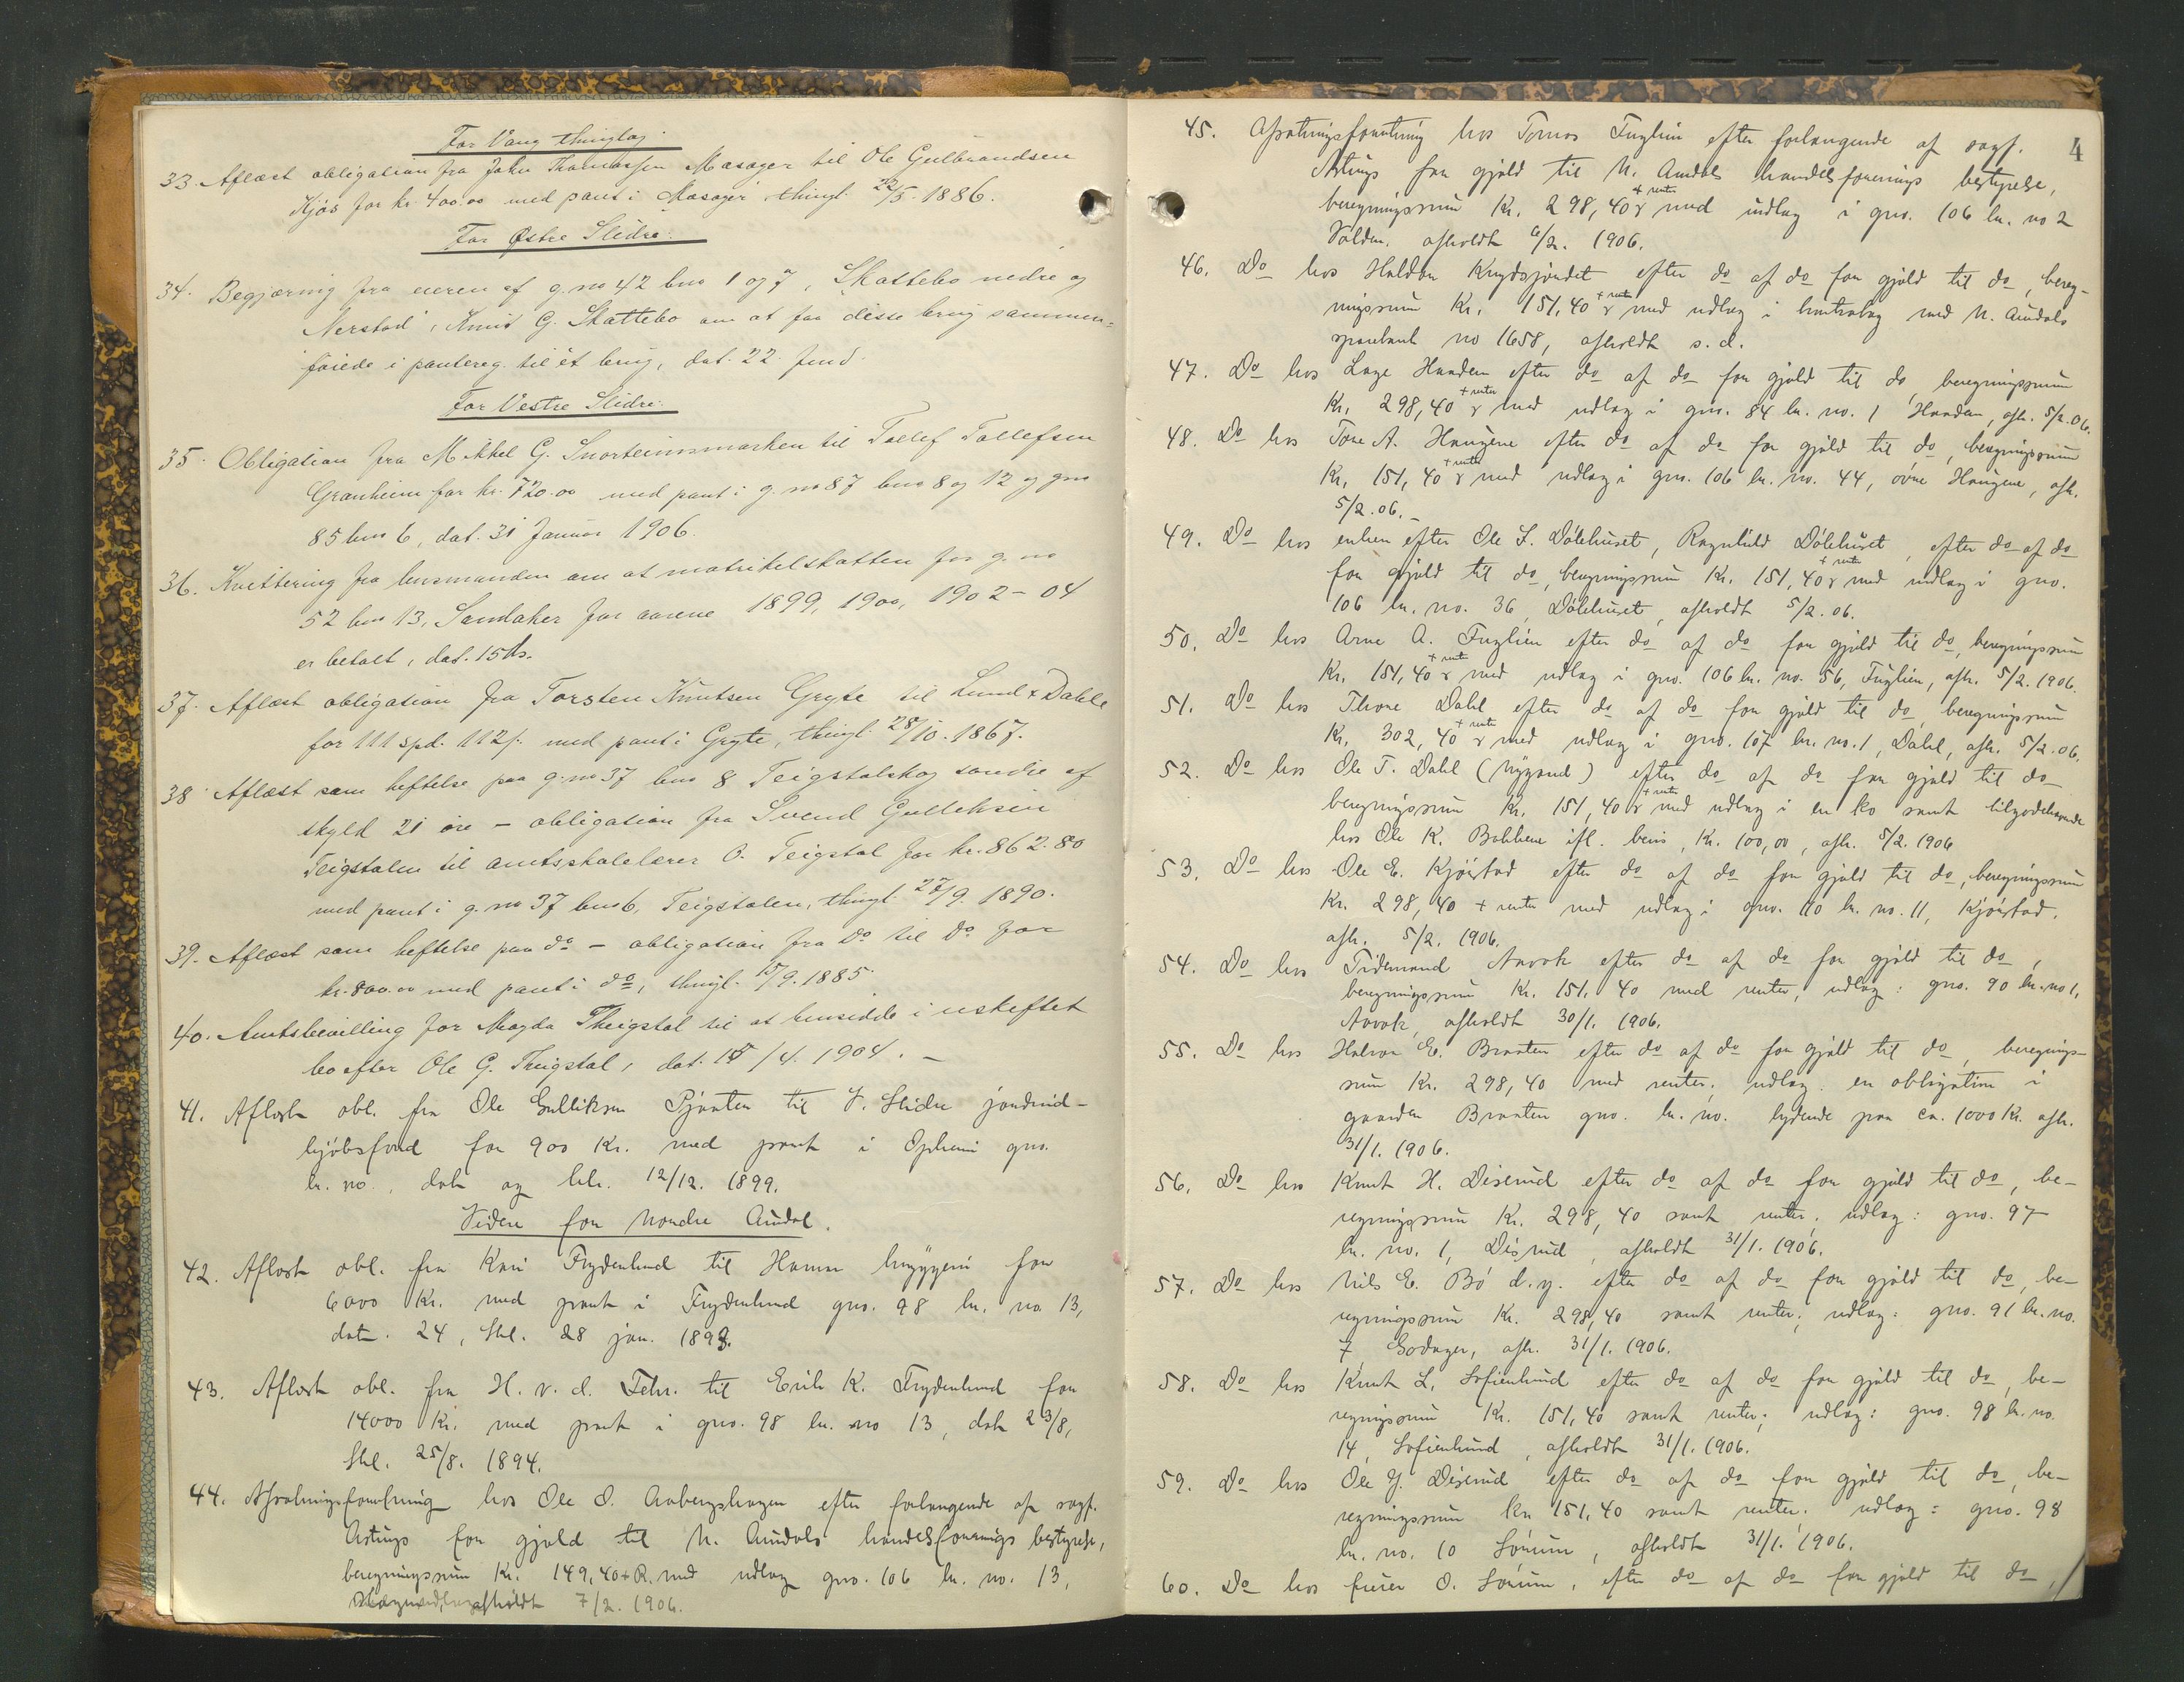 For Vang thinglag.
33. Aflæst obligation fra John Thomassen Masager til Ole Gulbrandsen
Kjøs for kr. 400.00 med pant i Masager thingl. 22/5. 1886.
For Østre Slidre:
34. Begjæring fra eieren af g.no 42 bno 1 og 7, Skattebo nedre og
Nerstad, Knut G. Skattebo om at faa disse brug sammen-
føiede i pantereg. til ét brug, dat. 22.
For Vestre Slidre:
35. Obligation fra Mikkel G. Snorteimsmarken til Tollef Tollefsen
Granheim for kr. 720.00 med pant i g.no 87 bno 8 og 12 og gno
85 bno 6, dat. 31 Januar 1906.
36. Kvittering fra lensmanden om at matrikelskatten for g.no
52 bno 13, Sandaker for aarene 1899, 1900, 1902-04
er betalt, dat. 15 ds.
37. Aflæst obligation fra Torsten Knutsen Gryte til Lund & Dahle
for 111 spd. 112 s. med pant i Gryte, thingl. 28/10. 1867.
38. Aflæst som heftelse paa g.no 37 bno 8 Teigstalskog søndre af
skyld 21 øre - obligation fra Svend Gulleksen
Teigstalen til amtsskolelærer O. Teigstal for kr. 862.80
med pant i g.no 37 bno 6, Teigstalen, thingl. 27/9. 1890.
39. Aflæst som heftelse paa do - obligation fra Do til Do for
kr. 800.00 med pant i do, thingl. 15/9. 1885
40. Amtsbevilling for Magda Theigstal til at hensidde i uskiftet
bo efter Ole G. Theigstal, dat. 15/4. 1904. -
41. Aflæst obl. fra Ole Gulliksen til V. Slidre jordind-
kjøbsfond for 900 Kr. med pant i Opheim gno.
br. no. , dat og 12/12. 1899.
Videre for Nordre Aurdal.
42. Aflæst obl. fra Kari Frydenlund til Hamar bryggeri for
6000 Kr. med pant i Frydenlund gno. 98 br. no. 13,
dat. 24, thl. 28 jan. 1893.
43. Aflæst obl. fra H. v. d. Fehr. til Erik K. Frydenlund for
14000 Kr. med pant i gno. 98 br. no 13, dat 23/8,
thl. 25/8. 1894.
44. Afsætningsforretning hos Ole O. Aabergshagen efter forlangende af sagf.
for gjæld til N. Aurdals handelsforenings bestyrelse,
beregningssum Kr. 149,40 + R. med udlæg gno. 106 br. no. 13,
afholdt 7/2. 1906.
4
45. hos Tomas Fuglien efter forlangende af sagf.
for gjæld til N. Aurdals handelsforenings bestyrelse,
beregningssum Kr. 298,40 + renter med udlæg i gno. 106 br. no 2
afholdt 6/2. 1906.
46. Do hos Haldor efter do af do for gjæld til do, bereg-
ningssum Kr. 151,40 + renter med udlæg i kontrabog med N. Aurdals
sparebank no 1658, afholdt s. d.
47. Do hos efter do af do for gjæld til do, beregningssum
Kr. 298,40 + renter med udlæg i gno. 84 br. no. 1 , afh. 5/2.06.
48. Do hos Tore A. Haugene efter do af do for gjæld til do, beregningssum
Kr. 151,40 + renter med udlæg i gno. 106 br. no. 44, øvre Haugene, afh.
5/2.06. -
49. Do hos enken efter Ole L. Dølehuset, Ragnhild Dølehuset, efter do af do
for gjæld til do, beregningssum Kr. 151,40 + renter med udlæg i gno.
106 br. no. 36, Dølehuset, afholdt 5/2.06.
50. Do hos Arne A. Fuglien efter do af do for gjæld til do, beregningssum
Kr. 151,40 + renter med udlæg i gno. 106 br. no. 56, Fuglien, afh. 5/2. 1906.
51. Do hos Thore Dahl efter do af do for gjæld til do, beregningssum
Kr. 302,40 + renter med udlæg i gno. 107 br. no. 1, Dahl, afh. 5/2.06.
52. Do hos Ole T. Dahl (Nygaard) efter do af do for gjæld til do
beregningssum Kr. 151,40 + renter med udlæg i en ko samt tilgodehavende
hos Ole K. Bakkene ifl. bevis, Kr. 100,00, afh. 5/2. 1906
53. Do hos Ole E. Kjørstad efter do af do for gjæld til do, beregningssum
Kr. 298,40 + renter med udlæg i gno. 110 br. no. 11, Kjørstad,
afh. 5/2. 1906.
54. Do hos Tidemand efter do af do for gjæld til do,
beregningssum Kr. 151,40 med renter, udlæg: gno. 90 br. no 1,
afholdt 30/1. 1906.
55. Do hos Halvor E. Braaten efter do af do for gjæld til do, beregnings-
sum Kr. 298,40 med renter, udlæg. en obligation i
gaarden Braaten gno. br. no. lydende paa ca. 1000 Kr. afh.
31/1. 1906.
56. Do hos Knut H. Diserud efter do af do for gjæld til do, be-
regningssum Kr. 298,40 samt renter, udlæg: gno. 97
br. no. 1, Diserud, afholdt 31/1. 1906.
57. Do hos Nils E. Bø d.y. efter do af do for gjæld til do, be-
regningssum Kr. 298,40 samt renter, udlæg: gno. 91 br. no.
7 Godager, afh. 31/1. 1906.
58. Do hos Knut L. Sofienlund efter do af do for gjæld til do, be-
regningssum Kr. 151,40 samt renter; udlæg: gno. 98 br. no.
14, Sofienlund, afholdt 31/1. 1906.
59. Do hos Ole G. Diserud efter do af do for gjæld til do, be-
regningssum Kr 151,40 samt renter. udlæg: gno. 98
br. no. 10 Sørum, afholdt 31/1. 1906.
60. Do hos O. Sørum, efter do af do for gjæld til do,